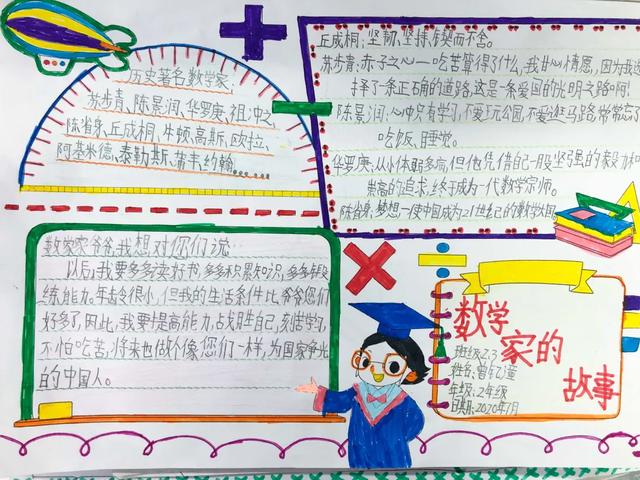 历史著名数学家:
苏步青、陈景润、华罗庚、祖冲之
陈省身、丘成桐、牛顿、高斯、欧拉、
阿基米德、泰勒斯、韦韦约翰……
丘成桐:坚韧、坚持、锲而不舍。
苏步青:赤子之心一吃苦算得了什么,我甘心情愿,因为我选
择了一条正确的道路,这是一条爱国的光明之路啊!
陈景润:心中只有学习,不爱玩公园,不爱逛马路,常常忘了
吃饭、睡觉。
华罗庚:从小体弱多病,但他凭借自己一股坚强的毅力和
崇高的追求,终于成为一代数学宗师。
陈省身:梦想一使中国成为21世纪的数学大国
数学家爷爷,我想对你们说:
以后,我要多多读好书,多多积累知识,多多锻
炼能力。年龄很小,但我的生活条件比爷爷您们
好多了,因此,我要提高能力,战胜自己,刻苦学习,
不怕吃苦,将来也做个像您们一样,为国家争光
的中国人。
数学
家的
故事
班级:2.3
姓名:曾钇潼
年级:2年级
日期:2020年1月